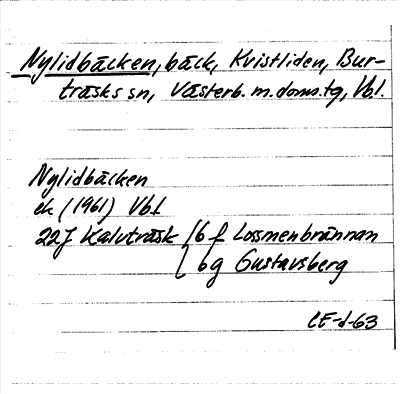 Nylidbäcken, bäck, Kvistliden, Bur-
träsks sn, Västerb. m. doms.tg, Vbl.
Nylidbäcken
ek (1961) Vbl
22J Kalvträsk 6 f Lossmenbrännan
6g Gustavsberg
CE-d-63